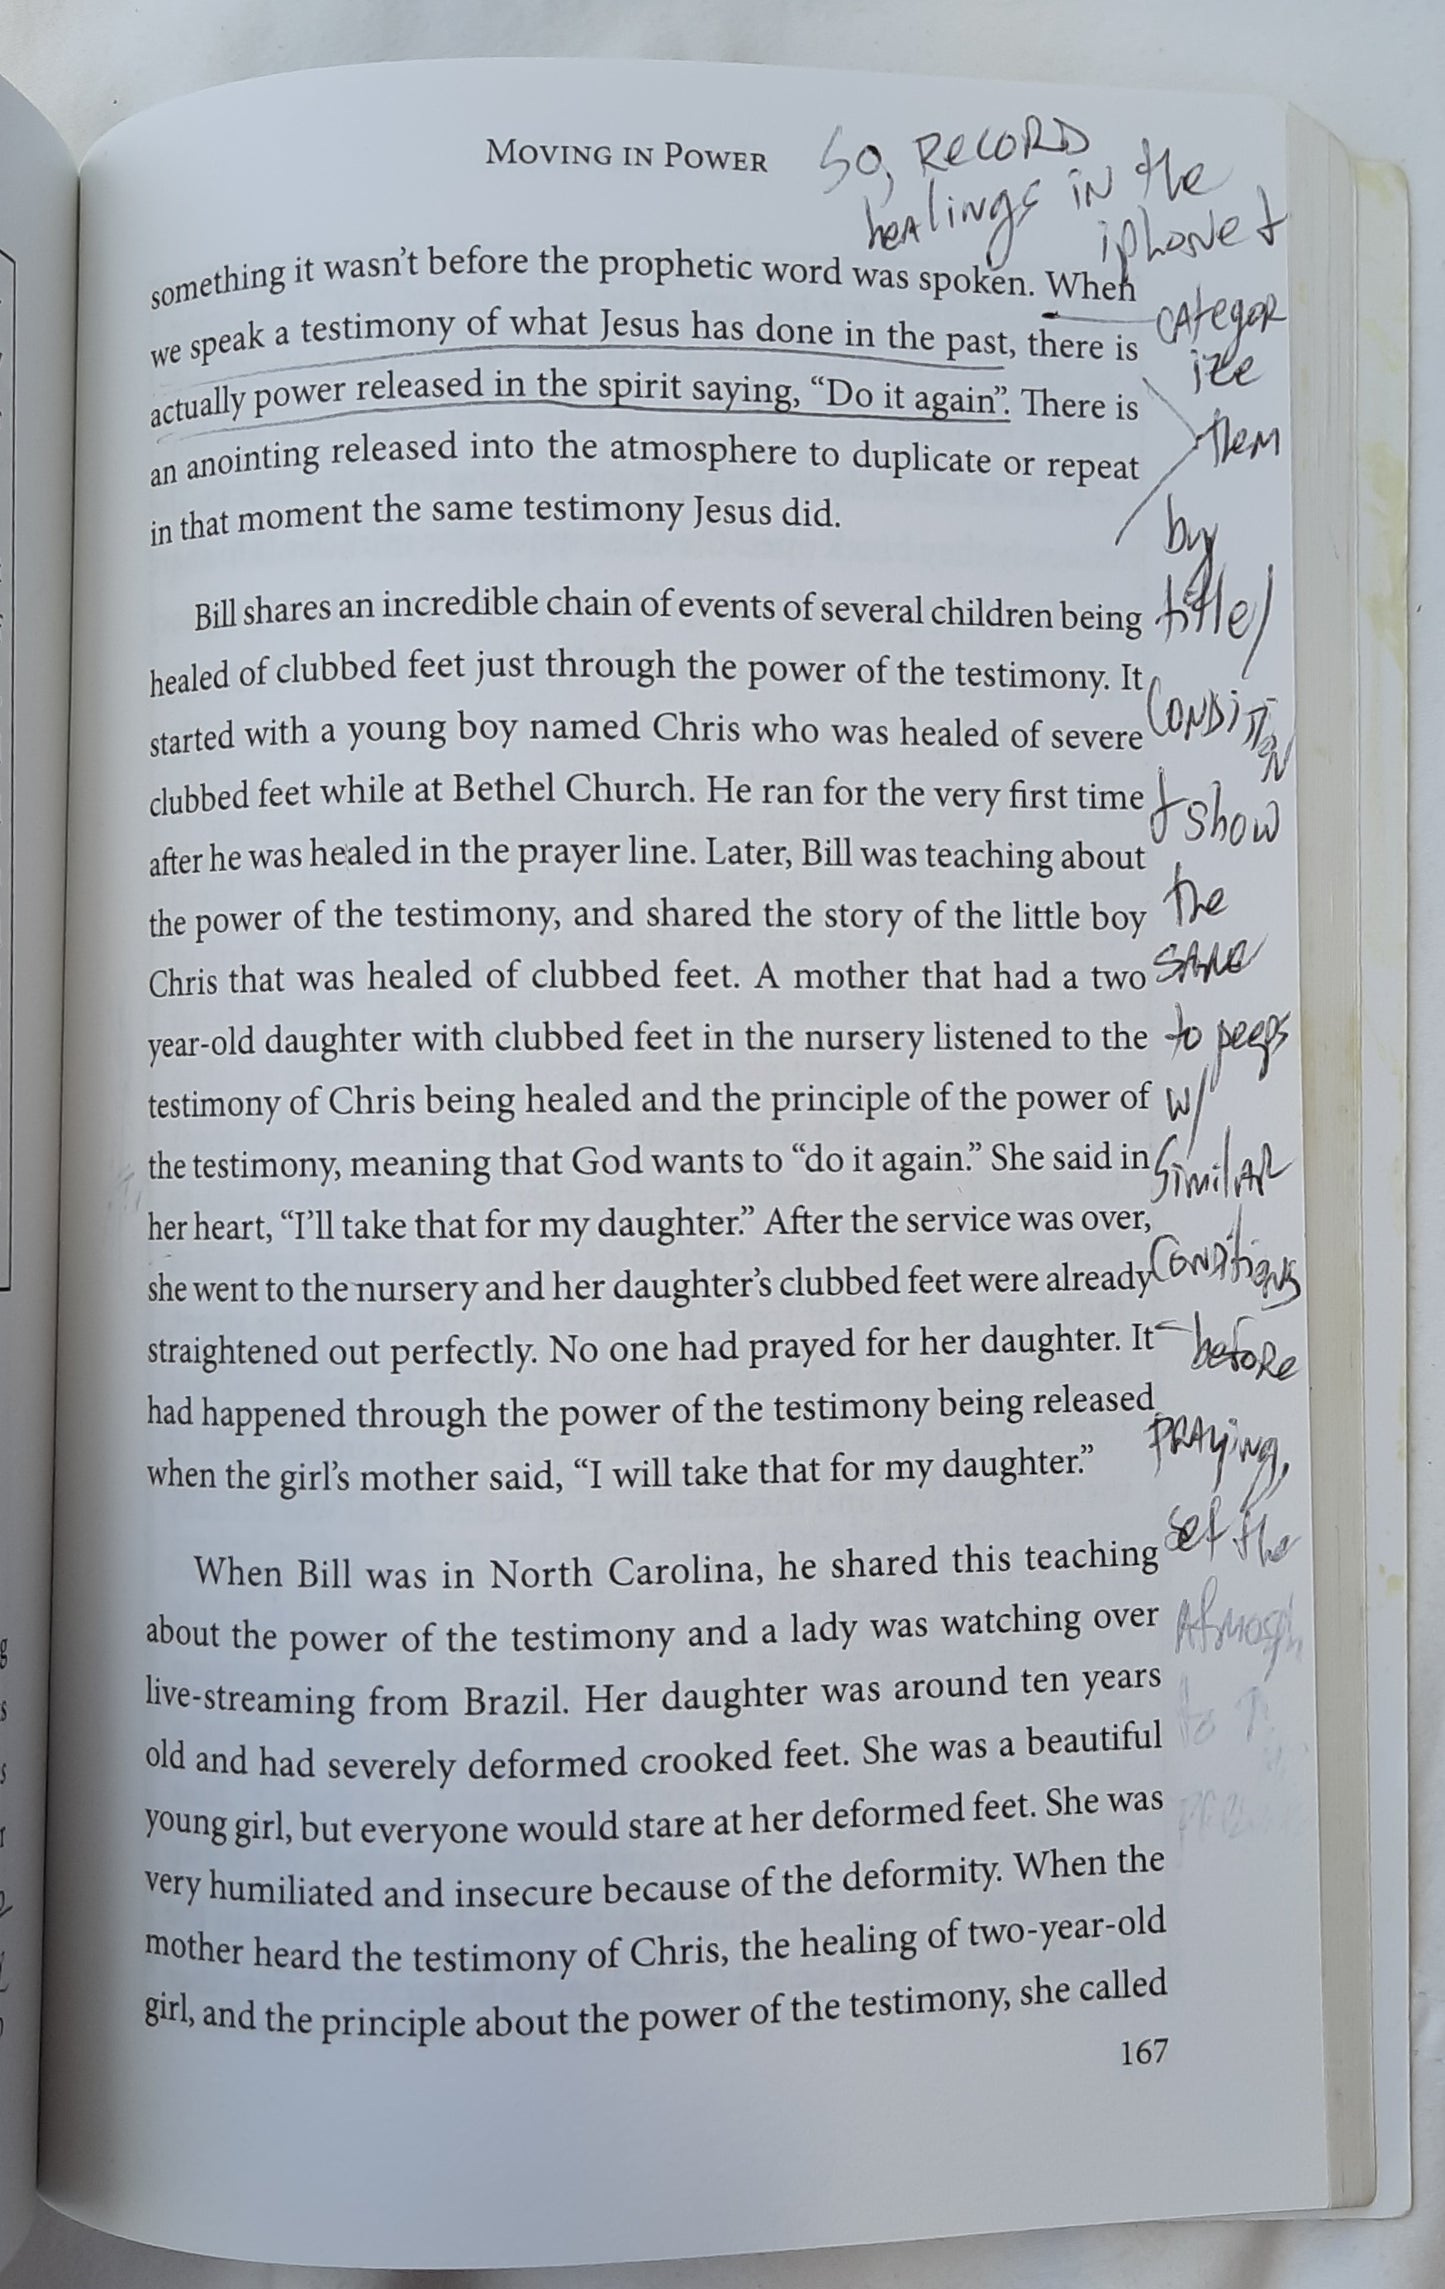 MOVING IN POWER
So, RECORD
healings in the
iphone &
categor
ize
them
by
title/
condition
& show
the
same
to peeps
w/
similar
conditions
before
praying,
set the
something it wasn't before the prophetic word was spoken. When
we speak a testimony of what Jesus has done in the past, there is
actually power released in the spirit saying, “Do it again”. There is
an anointing released into the atmosphere to duplicate or repeat
in that moment the same testimony Jesus did.
Bill shares an incredible chain of events of several children being
healed of clubbed feet just through the power of the testimony. It
started with a young boy named Chris who was healed of severe
clubbed feet while at Bethel Church. He ran for the very first time
after he was healed in the prayer line. Later, Bill was teaching about
the power of the testimony, and shared the story of the little boy
Chris that was healed of clubbed feet. A mother that had a two
year-old daughter with clubbed feet in the nursery listened to the
testimony of Chris being healed and the principle of the power of
the testimony, meaning that God wants to “do it again.” She said in
her heart, “I'll take that for my daughter.” After the service was over,
she went to the nursery and her daughter's clubbed feet were already
straightened out perfectly. No one had prayed for her daughter. It
had happened through the power of the testimony being released
when the girl's mother said, “I will take that for my daughter.”
When Bill was in North Carolina, he shared this teaching
about the power of the testimony and a lady was watching over
live-streaming from Brazil. Her daughter was around ten years
old and had severely deformed crooked feet. She was a beautiful
young girl, but everyone would stare at her deformed feet. She was
very humiliated and insecure because of the deformity. When the
mother heard the testimony of Chris, the healing of two-year-old
girl, and the principle about the power of the testimony, she called
167